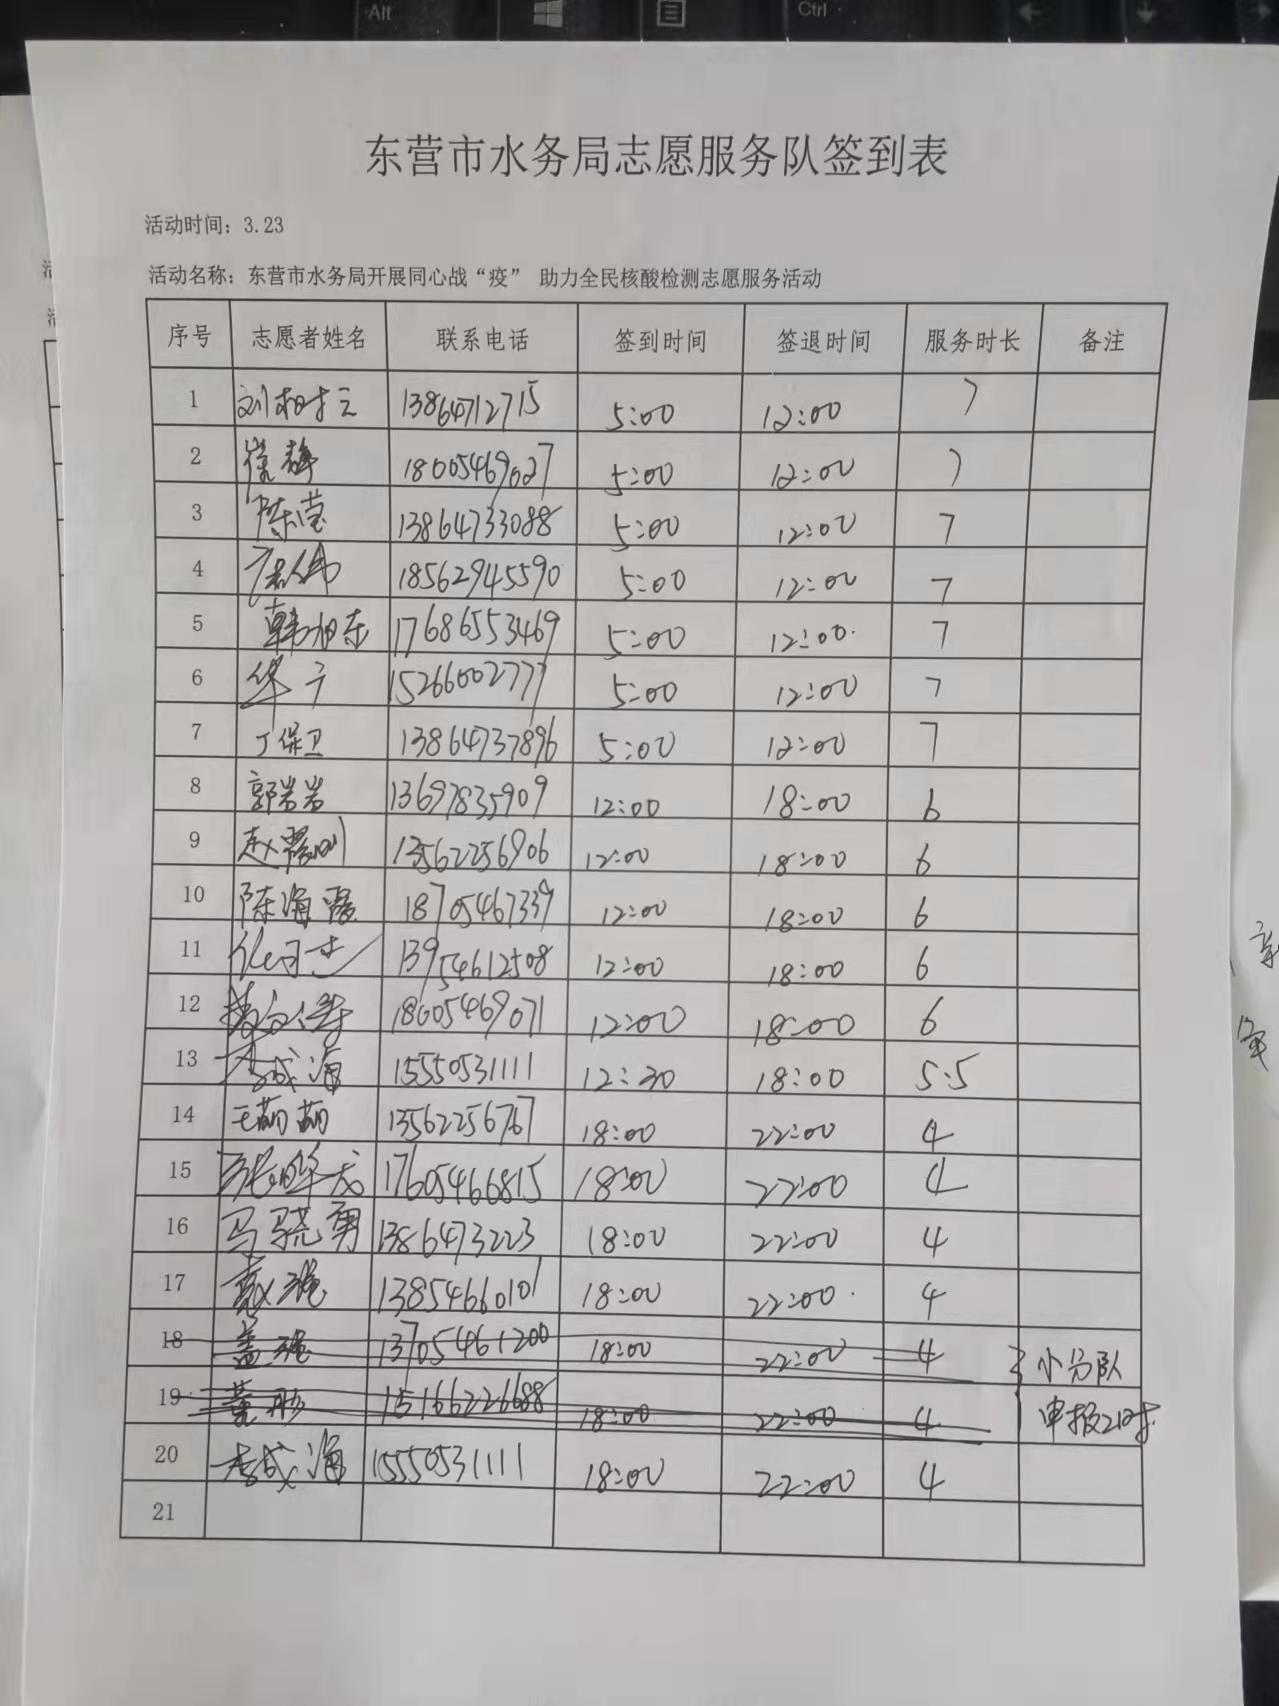 Alt
Ctrl
东营市水务局志愿服务队签到表
活动时间：3.23
活动名称：东营市水务局开展同心战“疫” 助力全民核酸检测志愿服务活动
序号 志愿者姓名 联系电话 签到时间 签退时间 服务时长 备注
1 刘树云 13864712715 5:00 12:00 7
2 崔静 18005469027 5:00 12:00 7
3 陈莹 13864733088 5:00 12:00 7
4 18562945590 5:00 12:00 7
5 韩旭东 17686553469 5:00 12:00 7
6 华宁 15266002777 5:00 12:00 7
7 丁保卫 13864737896 5:00 12:00 7
8 郭岩岩 13697835909 12:00 18:00 6
9 13562256906 12:00 18:00 6
10 陈海霞 18705467339 12:00 18:00 6
11 13954612508 12:00 18:00 6
12 18005469071 12:00 18:00 6
13 李成海 15550531111 12:30 18:00 5.5
14 王萌萌 13562256767 18:00 22:00 4
15 17605466815 18:00 22:00 4
16 马骁勇 1386473223 18:00 22:00 4
17 13854660101 18:00 22:00 4
18 盖强 13705461200 18:00 22:00 4 小分队
19 董彤 15166226688 18:00 22:00 4 申报2小时
20 李成海 15550531111 18:00 22:00 4
21